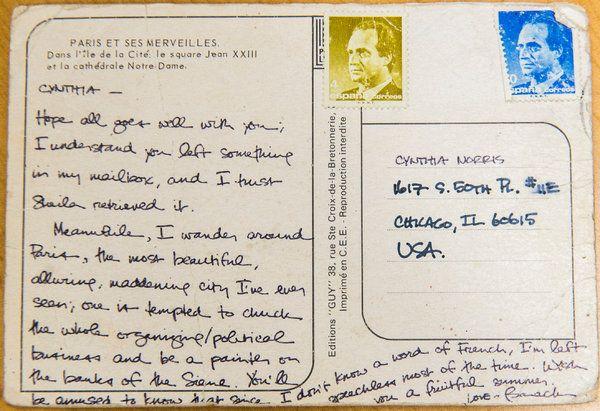 PARIS ET SES MERVEILLES.
Dans l'Île de la Cité: le square Jean XXIII
et la cathédrale Notre-Dame.
CYNTHIA —
Hope all goes well with you;
I understand you left something
in my mailbox, and I trust
Sheila retrieved it.
Meanwhile, I wander around
Paris, the most beautiful,
alluring, maddening city I've ever
seen; one is tempted to chuck
the whole organizing/political
business and be a painter on
the banks of the Siene. You'll
be amused to know that since I don't know a word of French, I'm left
speechless most of the time. Wish
you a fruitful summer.
Love - Barack
Editions "GUY" 38, rue Ste Croix-de-la-Bretonnerie,
Imprimé en C.E.E. - Reproduction interdite
4
españa correos
españa correos
CYNTHIA NORRIS
1617 S. 50TH PL. #11E
CHICAGO, IL 60615
USA.